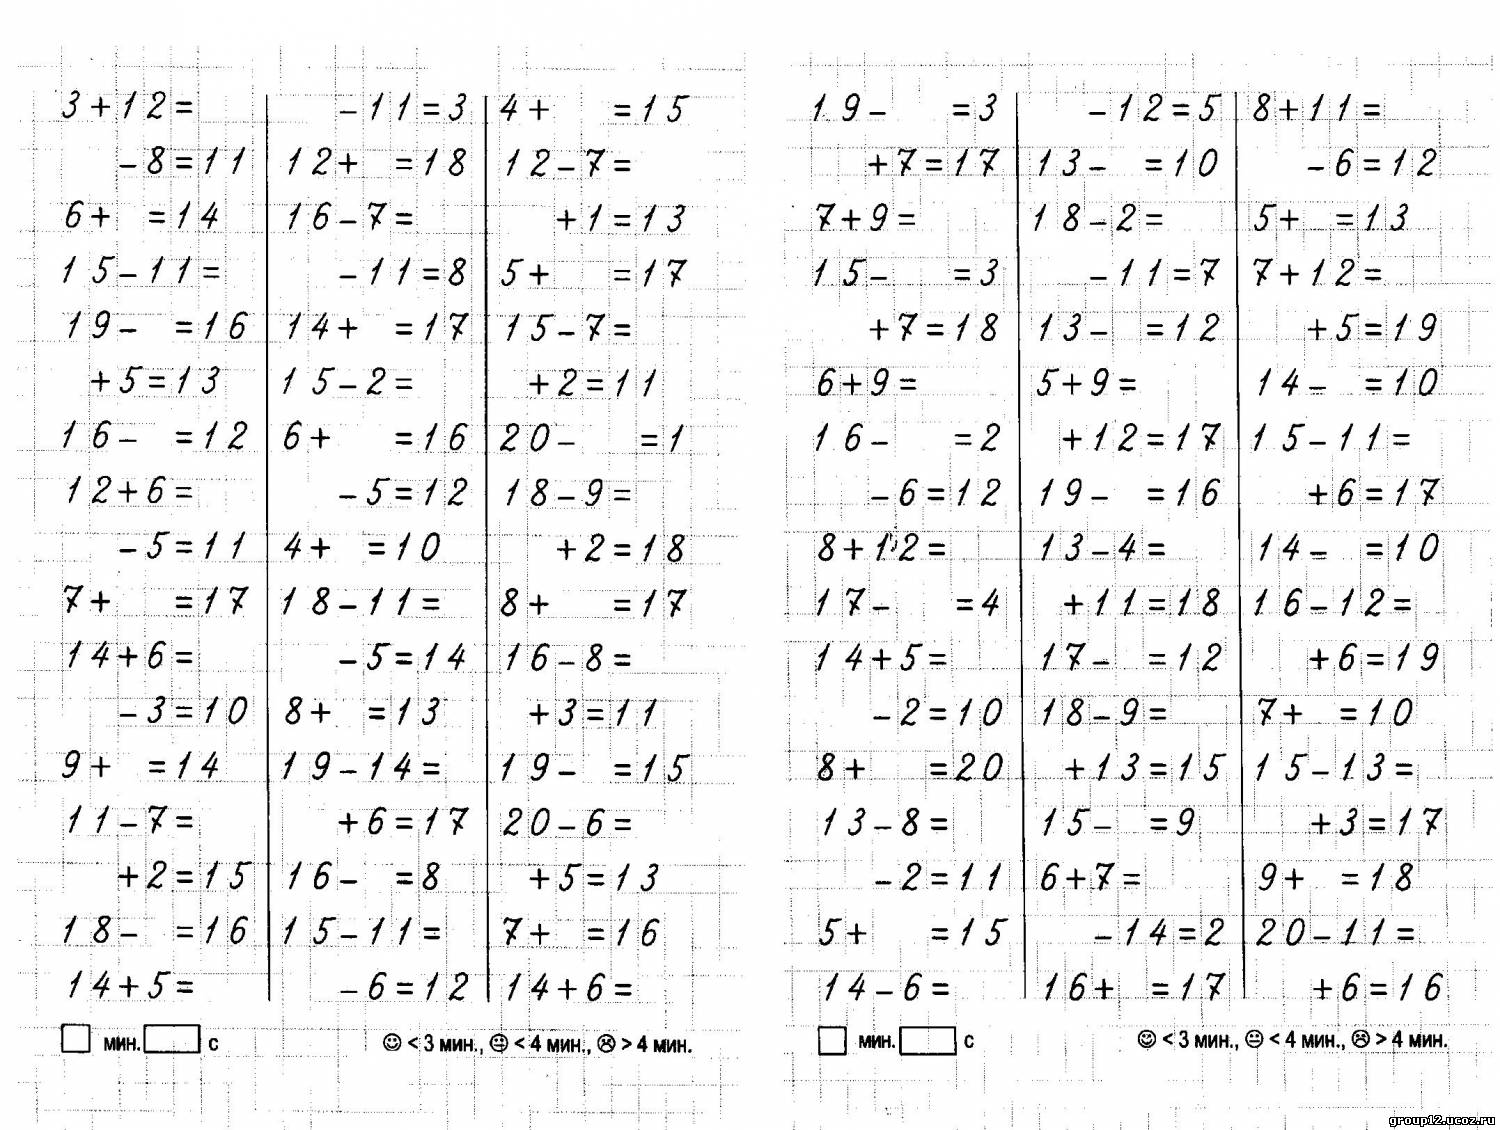 3+12=
-8=11
6+ =14
15-11=
19- =16
+5=13
16- =12
12+6=
-5=11
7+ =17
14+6=
-3=10
9+ =14
11-7=
+2=15
18- =16
14+5=
-11=3
12+ =18
16-7=
-11=8
14+ =17
15-2=
6+ =16
-5=12
4+ =10
18-11=
-5=14
8+ =13
19-14=
+6=17
16- =8
15-11=
-6=12
4+ =15
12-7=
+1=13
5+ =17
15-7=
+2=11
20- =1
18-9=
+2=18
8+ =17
16-8=
+3=11
19- =15
20-6=
+5=13
7+ =16
14+6=
мин. с
< 3 мин., < 4 мин., > 4 мин.
19- =3
+7=17
7+9=
15- =3
+7=18
6+9=
16- =2
-6=12
8+12=
17- =4
14+5=
-2=10
8+ =20
13-8=
-2=11
5+ =15
14-6=
-12=5
13- =10
18-2=
-11=7
13- =12
5+9=
+12=17
19- =16
13-4=
+11=18
17- =12
18-9=
+13=15
15- =9
6+7=
-14=2
16+ =17
8+11=
-6=12
5+ =13
7+12=
+5=19
14- =10
15-11=
+6=17
14- =10
16-12=
+6=19
7+ =10
15-13=
+3=17
9+ =18
20-11=
+6=16
мин. с
< 3 мин., < 4 мин., > 4 мин.
group12.ucoz.ru